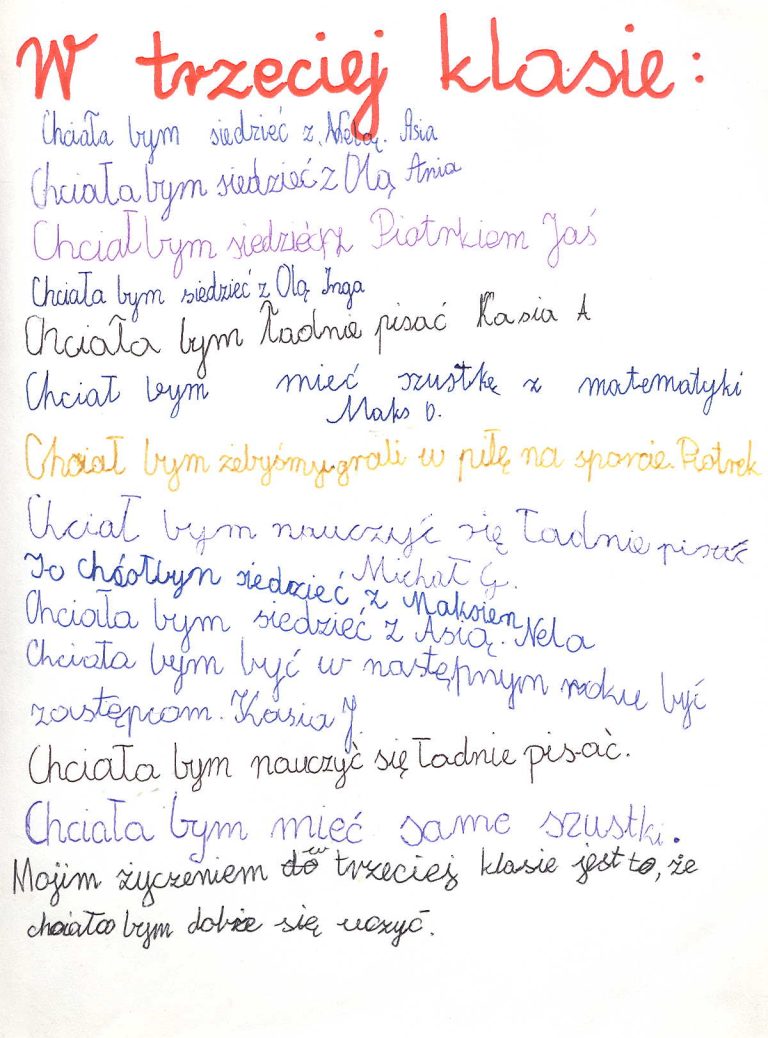 W trzeciej klasie:
Chciała bym siedzieć z Nelą. Asia
Chciała bym siedzieć z Olą Ania
Chciał bym siedzieć z Piotrkiem Jaś
Chciała bym siedzieć z Olą Inga
Chciała bym ładnie pisać Kasia A
Chciał bym mieć szustkę z matematyki
Maks D.
Chciał bym żebyśmy grali w piłę na sporcie. Piotrek
Chciał bym nauczyć się ładnie pisać
Michał G.
Jo siedzieć z Maksien
Chciała bym siedzieć z Asią. Nela
Chciała bym być w następnym roku być
zastępcom. Kasia J
Chciała bym nauczyć się ładnie pisać.
Chciała bym mieć same szustki.
Mojim życzeniem w trzeciej klasie jest to, że
chciała bym dobże się uczyć.